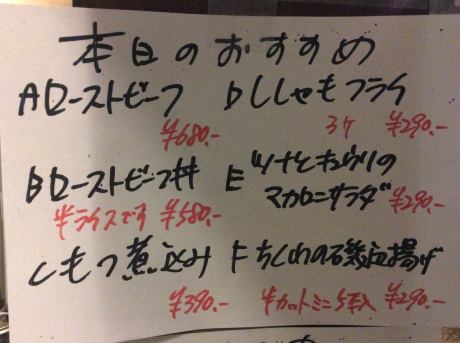 本日のおすすめ
Aローストビーフ
¥680.-
Bローストビーフ丼
半ライスです ¥580.-
Cもつ煮込み
¥390.-
Dししゃもフライ
3ケ ¥290.-
Eツナとキュウリの
マカロニサラダ ¥290.-
Fちくわの磯辺揚げ
半カットミニ5本入 ¥290.-